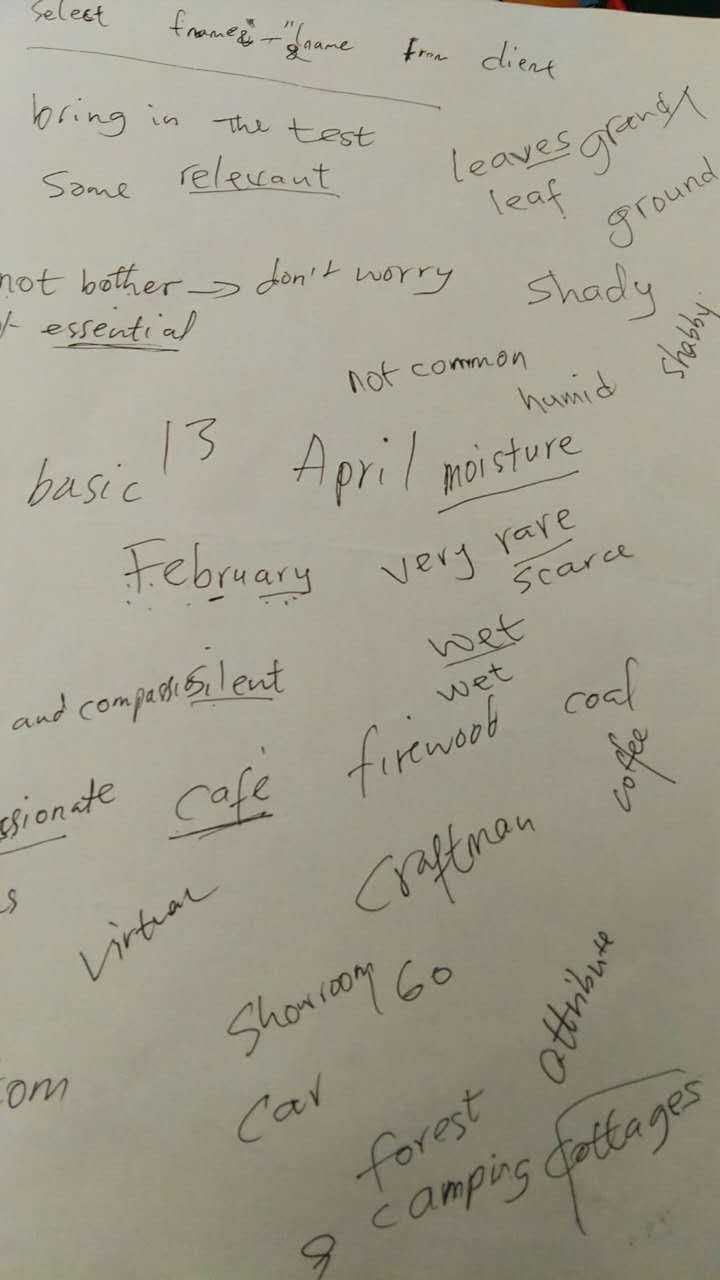 select fname&"-"&lname from client
bring in the test
some relevant
leaves grand
leaf ground
not bother → don't worry
shady
essential
shabby
not common
humid
basic 13 April moisture
February very rare
scarce
wet
wet
and compassio silent
firewood coal
ssionate café
coffee
s
virtual
Craftman
Showroom 60
attribute
om
Car
forest
& camping cottages